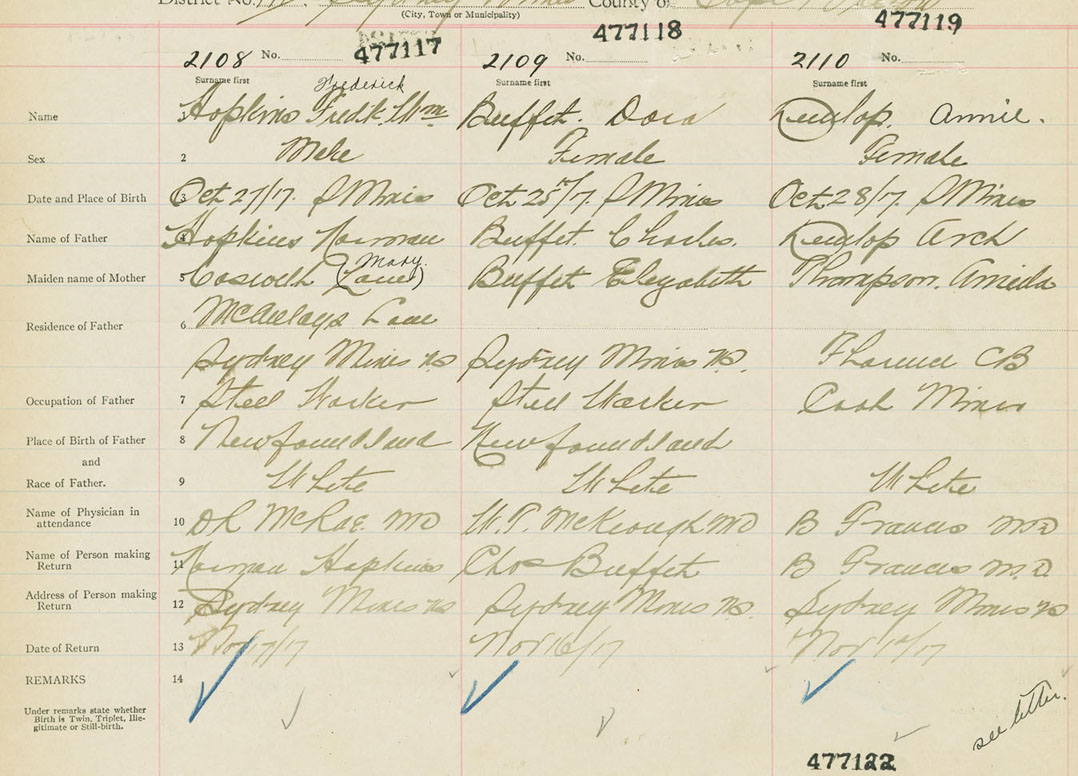 District No. Sydney Mines County of Cape Breton
(City, Town or Municipality)
477117 477118 477119
2108 No. 2109 No. 2110 No.
Surname first Surname first Surname first
Frederick
Name 1 Hopkins Fredk. Wm Buffet. Dora Dunlop. Annie.
Sex 2 Male Female Female
Date and Place of Birth 3 Oct 27/17. S Mines Oct 25/17. S Mines Oct 28/17. S Mines
Name of Father 4 Hopkins Norman Buffet. Charles. Dunlop Arch
Mary
Maiden name of Mother 5 (Laura) Buffet Elizabeth Thompson.
Residence of Father 6 Lane
Sydney Mines NS Sydney Mines NS. Florence CB
Occupation of Father 7 Steel Worker Steel Worker Coal Miner
Place of Birth of Father 8 Newfoundland Newfoundland
and
Race of Father. 9 White White White
Name of Physician in
attendance 10 McRae. MD McKeough MD B Francis M.D
Name of Person making
Return 11 Norman Hopkins Chas Buffet B Francis M.D.
Address of Person making
Return 12 Sydney Mines NS Sydney Mines NS. Sydney Mines NS
Date of Return 13 Nov 17/17 Nov 16/17 Nov
REMARKS 14
Under remarks state whether
Birth is Twin, Triplet, Ille-
gitimate or Still-birth.
see letter.
477122